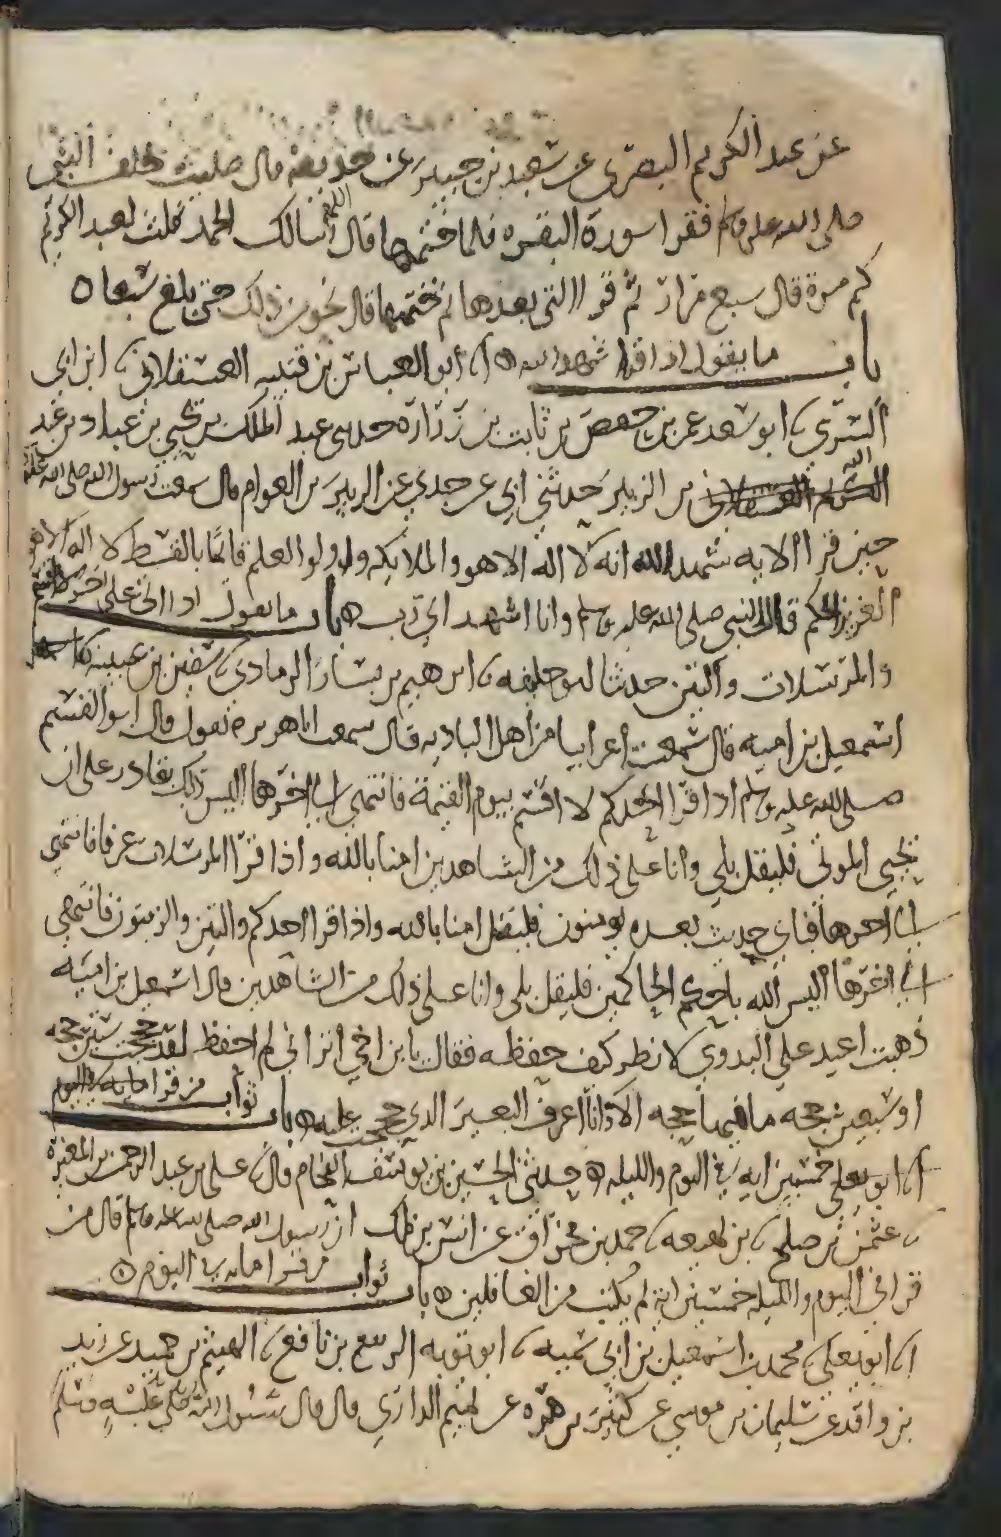 عن عبد الكريم البصري عن سعيد بن جبير عن حذيفة قال صليت خلف النبي
صلى الله عليه وسلم فقرا سورة البقره فلما ختمها قال اللهم ربنا لك الحمد قلت لعبد الكريم
كم مرة قال سبع مرار ثم قرا التي بعدها ثم ختمها قال نحو من ذلك حتى بلغ سبعا ه
باب ما يقول اذا قرا شهد الله ه ابو العباس بن قتيبه العسقلاني ابن ابي
السري ابو سعد عمر بن حفص بن ثابت بن زراره حدثني عبد الملك بن يحيى بن عباد بن عبد
الله بن الزبير حدثني ابي عن جدي عن الزبير بن العوام قال سمعت رسول الله صلى الله عليه
حين قرا الايه شهد الله انه لا اله الا هو والملايكه واولوا العلم قائما بالقسط لا اله الا هو
العزيز الحكيم قال النبي صلى الله عليه وسلم وانا اشهد اي رب ه باب ما يقول اذا اتى على اخر لا اقسم
والمرسلات والتين حدثنا ابو خليفه ابرهيم بن بشار الرمادي سفين بن عيينه
اسمعيل بن اميه قال سمعت اعرابيا من اهل الباديه قال سمعت ابا هريرة يقول قال ابو القسم
صلى الله عليه وسلم اذا قرا احدكم لا اقسم بيوم القيمة فانتهى الى اخرها اليس ذلك بقادر على ان
يحيي الموتى فليقل بلى وانا على ذلك من الشاهدين امنا بالله واذا قرا المرسلات عرفا فانتهى
الى اخرها فباي حديث بعده يومنون فليقل امنا بالله واذا قرا احدكم والتين والزيتون فانتهى
الى اخرها اليس الله باحكم الحاكمين فليقل بلى وانا على ذلك من الشاهدين قال اسمعيل بن اميه
ذهبت اعيد على البدوي لانظر كيف حفظه فقال يا بن اخي اتراني لم احفظ لقد حججت ستين حجه
او سبعين حجه ما فيها حجه الا وانا اعرف البعير الذي حججت عليه ه باب ثواب من قرا
ابو يعلى خمسين ايه في اليوم والليله ه حدثني الحسين بن يوسف الفحام قال علي بن عبد الرحمن بن المغيرة
عثمن بن صلح بن لهيعه حميد بن مخراق عن انس بن ملك ان رسول الله صلى الله عليه وسلم قال من
قرا في اليوم والليله خمسين اية لم يكتب من الغافلين ه باب ثواب من قرا مايه في اليوم ه
ابو يعلى محمد بن اسمعيل بن ابي سمينه ابو توبه الربيع بن نافع الهيثم بن حميد عن زيد
بن واقد عن سليمان بن موسى عن كثير بن مره عن تميم الداري قال قال رسول الله صلى الله عليه وسلم